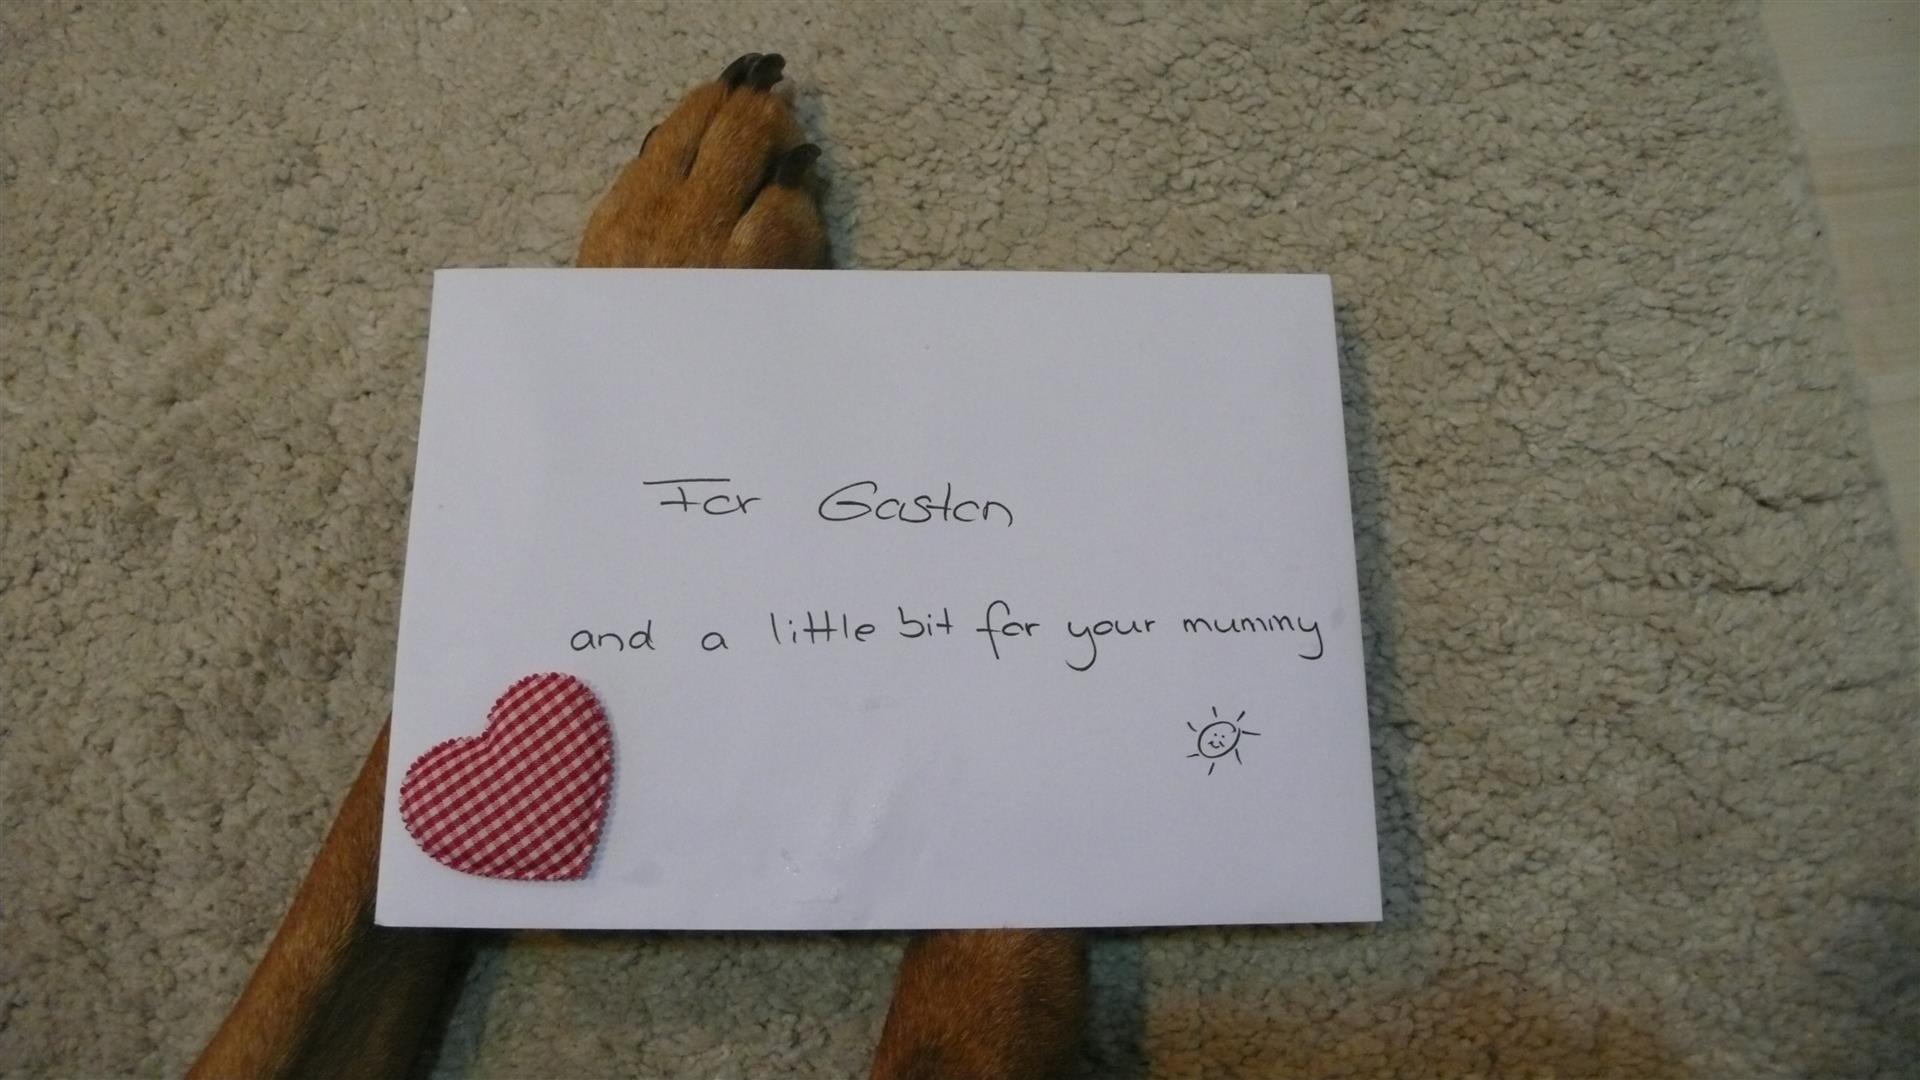 For Gaston
and a little bit for your mummy